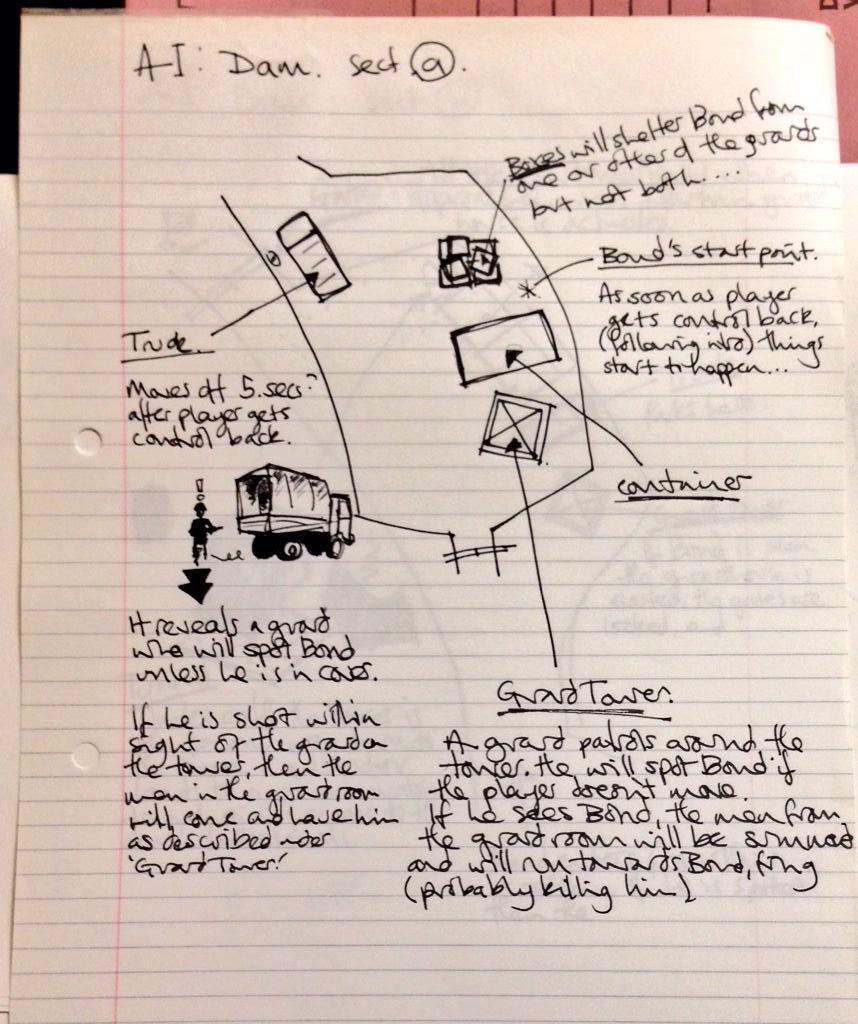 AI: Dam. sect (a).
Boxes will shelter Bond from
one or other of the guards
but not both....
Bond's start point.
As soon as player
gets control back,
(following intro) things
start to happen...
Truck.
Moves off 5.secs?
after player gets
control back.
container
!
It reveals a guard
who will spot Bond
unless he is in cover.
If he is shot within
sight of the guard on
the tower, then the
men in the guardroom
will come and have him
as described under
'Guard Tower.'
Guard Tower.
A guard patrols around the
tower. He will spot Bond if
the player doesn't move.
If he sees Bond, the men from
the guardroom will be summoned
and will run towards Bond, firing
(probably killing him)